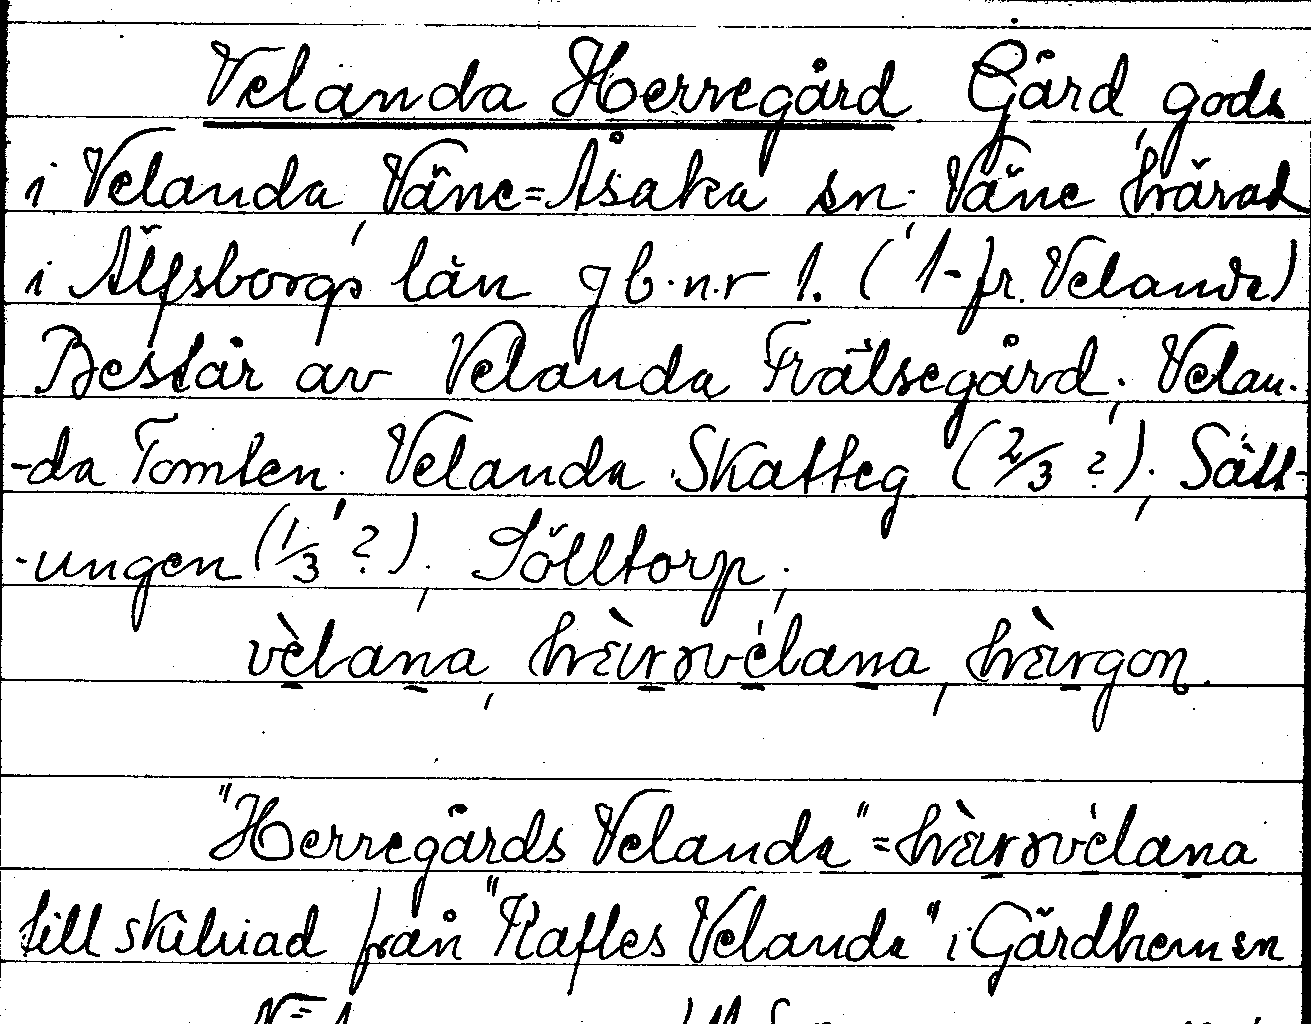 Velanda Herregård Gård, gods
i Velanda, Väne=Åsaka sn. Väne härad
i Älfsborgs län gb.nr 1. (1-fr. Velanda)
Består av Velanda Frälsegård, Velan-
-da Tomten. Velanda Skatteg (2/3 ?), Sätt-
-ungen (1/3 ?), Sölltorp,
vèlana, hæ̀rəvélana, hæ̀rgon.
"Herregårds Velanda" = hæ̀rəvélana
till skilnad från "Rafles Velanda" i Gärdhem sn